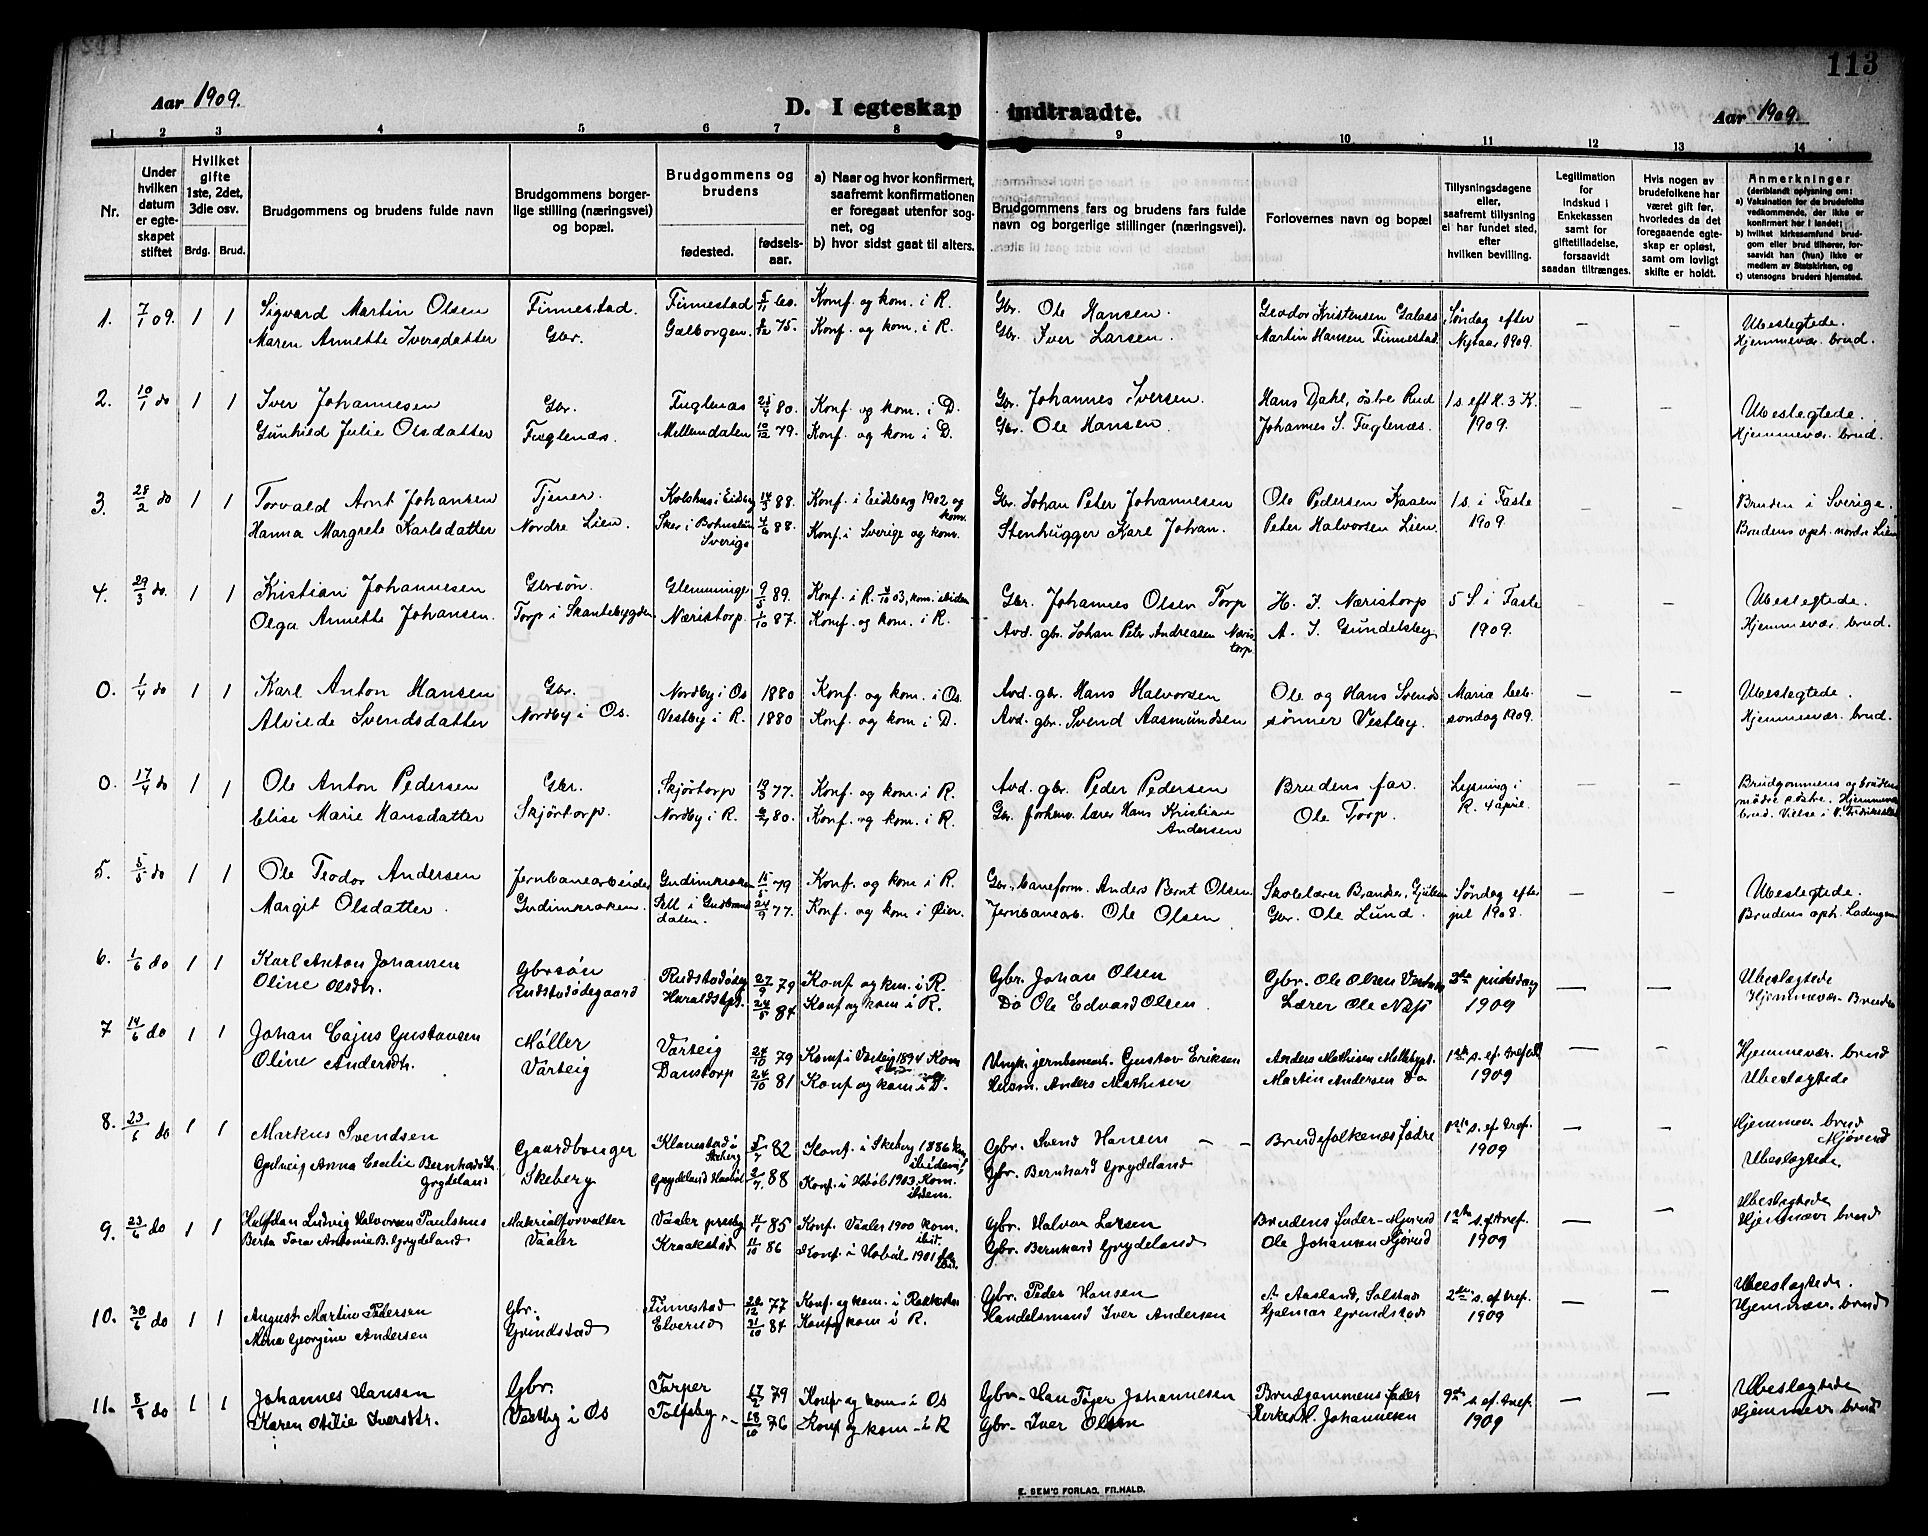 113
Aar 1909.
D. I egteskap indtraadte.
Aar 1909.
1 2 3 4 5 6 7 8 9 10 11 12 13 14
Nr.
Under hvilken datum er egteskapet stiftet
Hvilket gifte 1ste, 2det, 3die osv.
Brdg. Brud.
Brudgommens og brudens fulde navn
Brudgommens borgerlige stilling (næringsvei) og bopæl.
Brudgommens og brudens
fødested.
fødselsaar.
a) Naar og hvor konfirmert, saafremt konfirmationen er foregaat utenfor sognet, og
b) hvor sidst gaat til alters.
Brudgommens fars og brudens fars fulde navn og borgerlige stillinger (næringsvei).
Forlovernes navn og bopæl
Tillysningsdagene eller, saafremt tillysning ei har fundet sted, efter hvilken bevilling.
Legitimation for indskud i Enkekassen samt for giftetilladelse, forsaavidt saadan tiltrænges.
Hvis nogen av brudefolkene har været gift før, hvorledes da det foregaaende egteskap er opløst, samt om lovligt skifte er holdt.
Anmerkninger
(deriblandt oplysning om:
a) Vaksination for de brudefolks vedkommende, der ikke er konfirmert her i landet;
b) hvilket kirkesamfund brudgom eller brud tilhører, forsaavidt han (hun) ikke er medlem av Statskirken, og
c) utensogns bruders hjemsted.
1. 7/1 09. 1 1 Sigvard Martin Olsen Finnestad. Finnestad 5/11 Konf. og kom. i R. Gbr. Ole Hansen. Teodor Kristensen Søndag efter — — Ubeslegtede.
Maren Annette Iversdatter Gbr. Galborgen 75. Konf. og kom. i R. Gbr. Iver Larsen. Martin Hansen Finnestad. Nytaar 1909. Hjemmevær. brud.
2. 10/1 do 1 1 Iver Johannesen Gbr. Fuglenæs 80. Konf. og kom. i D. Gbr. Johannes Iversen. Hans Dahl, østre Rud 1 s. eft H. 3 K. — — Ubeslegtede.
Gunhild Julie Olsdatter Fuglenæs. Millemdalen 10/12 79. Konf. og kom. i D. Gbr. Ole Hansen. Johannes S. Fuglenæs. 1909. Hjemmevær. brud.
3. 28/2 do 1 1 Torvald Arnt Johansen Tjener. Kolshus i Eidberg 14/3 88. Konf. i Eidsberg 1902 og kom. Gbr. Johan Peter Johannesen Ole Pedersen Kaaen 1 s. i Faste — — Bruden i Sverige.
Hanna Margrete Karlsdatter Nordre Lien. i Bohuslän Sverige 4/6 88. Konf. i Sverige og kom. Stenhugger Karl Johan. Peter Halvorsen Lien. 1909. Brudens oph. nordre Lien
4. 29/3 do. 1 1 Kristian Johannesen Gbrsøn. Glemminge 9/5 89. Konf. i R. 03, kom. Gbr. Johannes Olsen Torp H. J. Næristorp 5 S i Faste — — Ubeslegtede.
Olga Annette Johansen. Torp i Skantebygden Næristorp. 1/10 87. Konf. og kom. i R. Avd. gbr. Johan Peter Andreasen Næristorp A. J. Gundelsby 1909. Hjemmevær. brud.
0. 1/4 do 1 1 Karl Anton Hansen Gbr. Nordby i Os 1880 Konf. og kom. i Os. Avd. gbr. Hans Halvorsen Ole og Hans Svends Maria beb. — — Ubeslegtede.
Alvilde Svendsdatter Nordby i Os. Vestby i R. 1880 Konf. og kom. i D. Avd. gbr. Svend Aasmundsen sønner Vestby. søndag 1909. Hjemmevær. brud.
0. 17/4 do 1 1 Ole Anton Pedersen Gbr. Skjørtorp 77. Konf. og kom. i R. Avd. gbr. Peder Pedersen Brudens far. Lysning i — — Brudgommens og brudens
Elise Marie Hansdatter Skjørtorp. Nordby i R. 80. Konf. og kom. i R. Gbr. forhenv. lærer Hans Kristian Andersen Ole Torp. R. 4 april. mødre søstre. Hjemmevær. brud. Vielse i
5. 5/5 do 1 1 Ole Teodor Andersen Jernbanearbeider Gudimkroken 15/5 79 Konf. og kom. i R. Gbr. baneform. Anders Bernt Olsen Skolelærer Brander, Søndag efter — — Ubeslegtede.
Margit Olsdatter. Gudimkroken. i Gudbrandsdalen. 24/9 77. Konf. og kom i Øier. Jernbanearb. Ole Olsen Gbr. Ole Lund. jul 1908. Brudens oph. Ladengen
6. 1/6 do 1 1 Karl Anton Johansen Gbrsøn Rudstadødeg 27/9 79 Konf. og kom. i R. Gbr. Johan Olsen Gbr. Ole Olsen 2den pinsedag — — Ubeslegtede
Oline Olsdtr. Rudstadødegaard 24/5 84 Konf. og kom. i R. Do Ole Edvard Olsen Lærer Ole Næss 1909 Hjemmevær. Bruden
7 14/6 do 1 1 Johan Cajus Gustavsen Møller Varteig 24/10 79 Konf. i Varteig 1894 Kom Gustav Eriksen Anders Mathisen 1ste s. ef. trefold. — — Hjemmevær. brud
Oline Andersdtr. Varteig Danstorp 24/10 81 Konf. og kom. i D. Anders Mathisen Martin Andersen Do 1909 Ubeslegtede
8. 23/6 do 1 1 Markus Svendsen Gaardbruger Klavestad i Skeberg 5/7 82 Konf. i Skeberg 1886 kom. ibidem Gbr. Svend Hansen Brudefolkenes fædre s. ef. tref. — — Hjemmev. brud Mjørud
Anna Cecilie Bernhardsdtr. Grydeland Skeberg Grydeland Haabøl 2/7 88 Konf. i Hobøl 1903. Kom. ibidem. Gbr. Bernhard Grydeland 1909 Ubeslegtede
9. 23/6 do 1 1 Halfdan Ludvig Halvorsen Paulshus Materialforvalter Vaaler 11/1 85 Konf. Vaaler 1900 kom. ibid. Gbr. Halvor Larsen Brudens fader - Mjørud 1ste s. ef. tref. — — Ubeslegtede
Berta Tora Antonie B. Grydeland Vaaler Kraakstad 11/10 86 Konf. i Hobøl 1901 Gbr. Bernhard Grydeland Ole Johansen Mjørud 1909 Hjemmevær. brud
10. 30/6 do 1 1 August Martin Pedersen Gbr. Finnestad 77 Konf. og kom. i Rakkestad Gbr. Peder Hansen A Aasland, Solstad 2den s. ef. tref. — — Ubeslegtede.
Mina Georgine Andersen Grindstad Elverud 21/10 84 Konf. og kom i R. Handelsmand Iver Andersen Hjalmar Grindstad 1909 Hjemmevær. brud
11. 8/8 do 1 1 Johannes Hansen Gbr. Torper 17/2 79 Konf. og kom. i Os Gbr. Johannesen Brudgommens fader 9de s. ef. tref. — — Ubeslegtede
Karen Otilie Iversdtr. Vestby i Os Tolfsby 18/10 76 Konf. og kom. i R Gbr. Iver Olsen Johannesen 1909 Hjemmevær. brud
E. SEM'S FORLAG, FR.HALD.